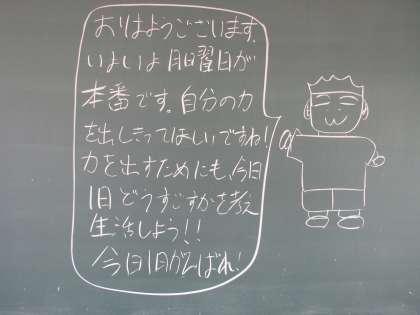 おはようございます。
いよいよ月曜日が
本番です。自分の力
を出しきってほしいですね!
力を出すためにも、今日
1日どうすごすかを考え
生活しよう!!
今日1日がんばれ!